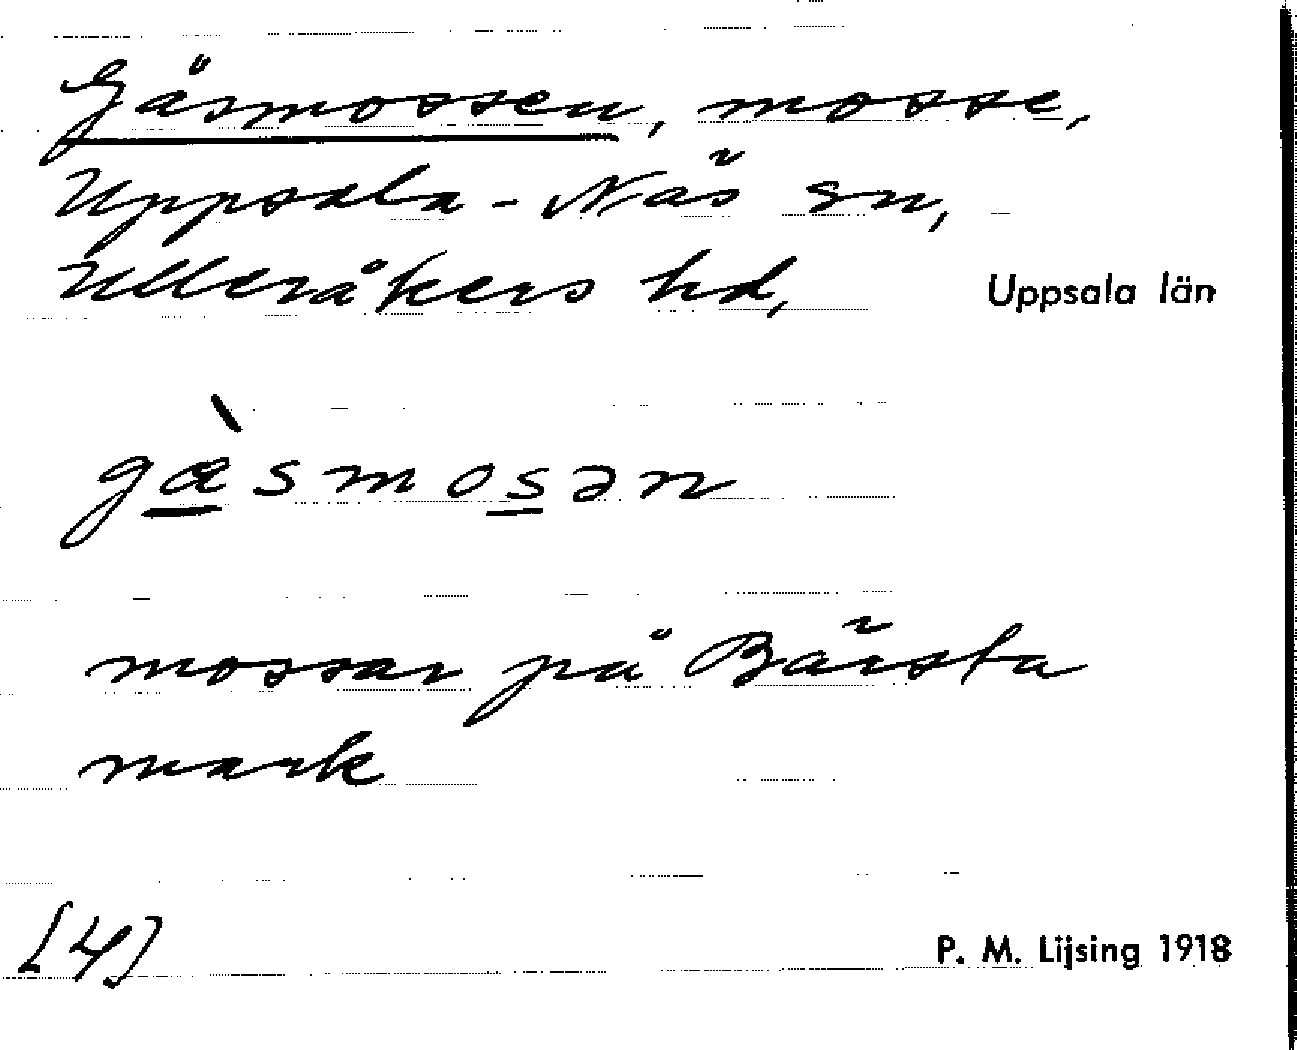 Gåsmossen, mosse,
Uppsala-Näs sn,
Ulleråkers hd, Uppsala län
gæ̀smosən
mossar på Bärsta
mark
[4]
P. M. Lijsing 1918